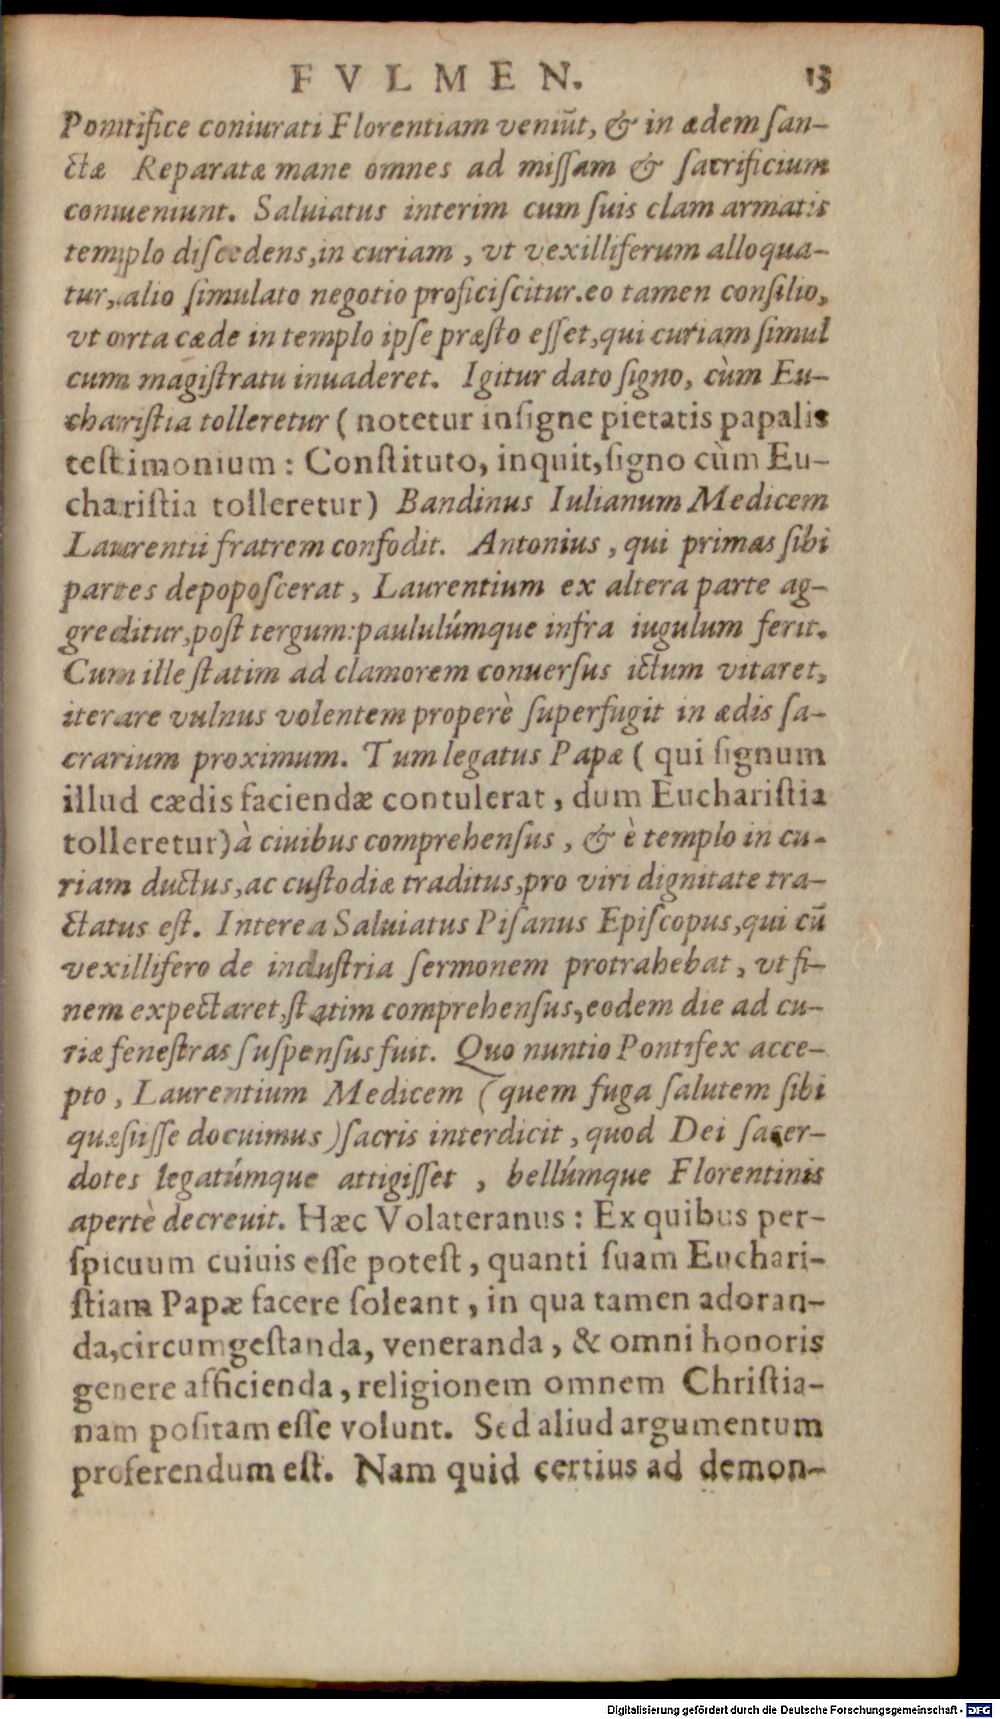 FVLMEN. 13
Pontifice coniurati Florentiam veniūt, & in ædem ſan-
ctæ Reparatæ mane omnes ad miſſam & ſacrificium
conueniunt. Saluiatus interim cum ſuis clam armatis
templo diſcedens, in curiam, vt vexilliferum alloqua-
tur, alio ſimulato negotio proficiſcitur. eo tamen conſilio,
vt orta cæde in templo ipſe præſto eſſet, qui curiam ſimul
cum magiſtratu inuaderet. Igitur dato ſigno, cùm Eu-
chariſtia tolleretur ( notetur inſigne pietatis papalis
teſtimonium : Conſtituto, inquit, ſigno cùm Eu-
chariſtia tolleretur) Bandinus Iulianum Medicem
Laurentii fratrem confodit. Antonius, qui primas ſibi
partes depopoſcerat, Laurentium ex altera parte ag-
greditur, poſt tergum: paululúmque infra iugulum ferit.
Cum ille ſtatim ad clamorem conuerſus ictum vitaret,
iterare vulnus volentem properè ſuperfugit in ædis ſa-
crarium proximum. Tum legatus Papæ ( qui ſignum
illud cædis faciendæ contulerat, dum Euchariſtia
tolleretur) à ciuibus comprehenſus, & è templo in cu-
riam ductus, ac cuſtodiæ traditus, pro viri dignitate tra-
ctatus eſt. Interea Saluiatus Piſanus Epiſcopus, qui cū
vexillifero de induſtria ſermonem protrahebat, vt fi-
nem expectaret, ſtatim comprehenſus, eodem die ad cu-
riæ feneſtras ſuſpenſus fuit. Quo nuntio Pontifex acce-
pto, Laurentium Medicem (quem fuga ſalutem ſibi
quæſiiſſe docuimus) ſacris interdicit, quod Dei ſacer-
dotes legatúmque attigiſſet, bellúmque Florentinis
apertè decreuit. Hæc Volateranus : Ex quibus per-
ſpicuum cuiuis eſſe poteſt, quanti ſuam Euchari-
ſtiam Papæ facere ſoleant, in qua tamen adoran-
da, circumgeſtanda, veneranda, & omni honoris
genere afficienda, religionem omnem Chriſtia-
nam poſitam eſſe volunt. Sed aliud argumentum
proferendum eſt. Nam quid certius ad demon-
Digitalisierung gefördert durch die Deutsche Forschungsgemeinschaft - DFG